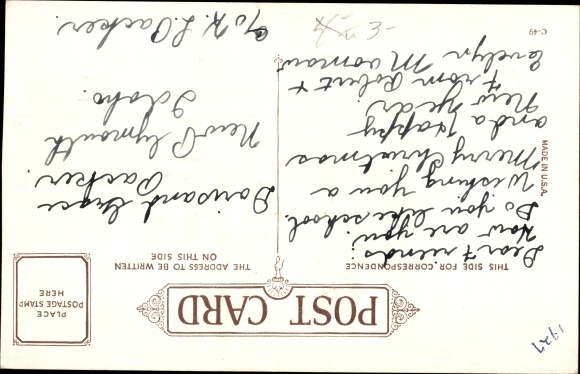 POST CARD
THIS SIDE FOR CORRESPONDENCE
THE ADDRESS TO BE WRITTEN
ON THIS SIDE
PLACE
POSTAGE STAMP
HERE
1927
Dear Friends:
How are you.
Do you like school.
Wishing you a
Merry Christmas
and a Happy
New Year
From Robert +
Evelyn
Doris and Grace
Parker
New Plymouth
Idaho.
c/o K. L. Parker.
MADE IN U.S.A.
C-49